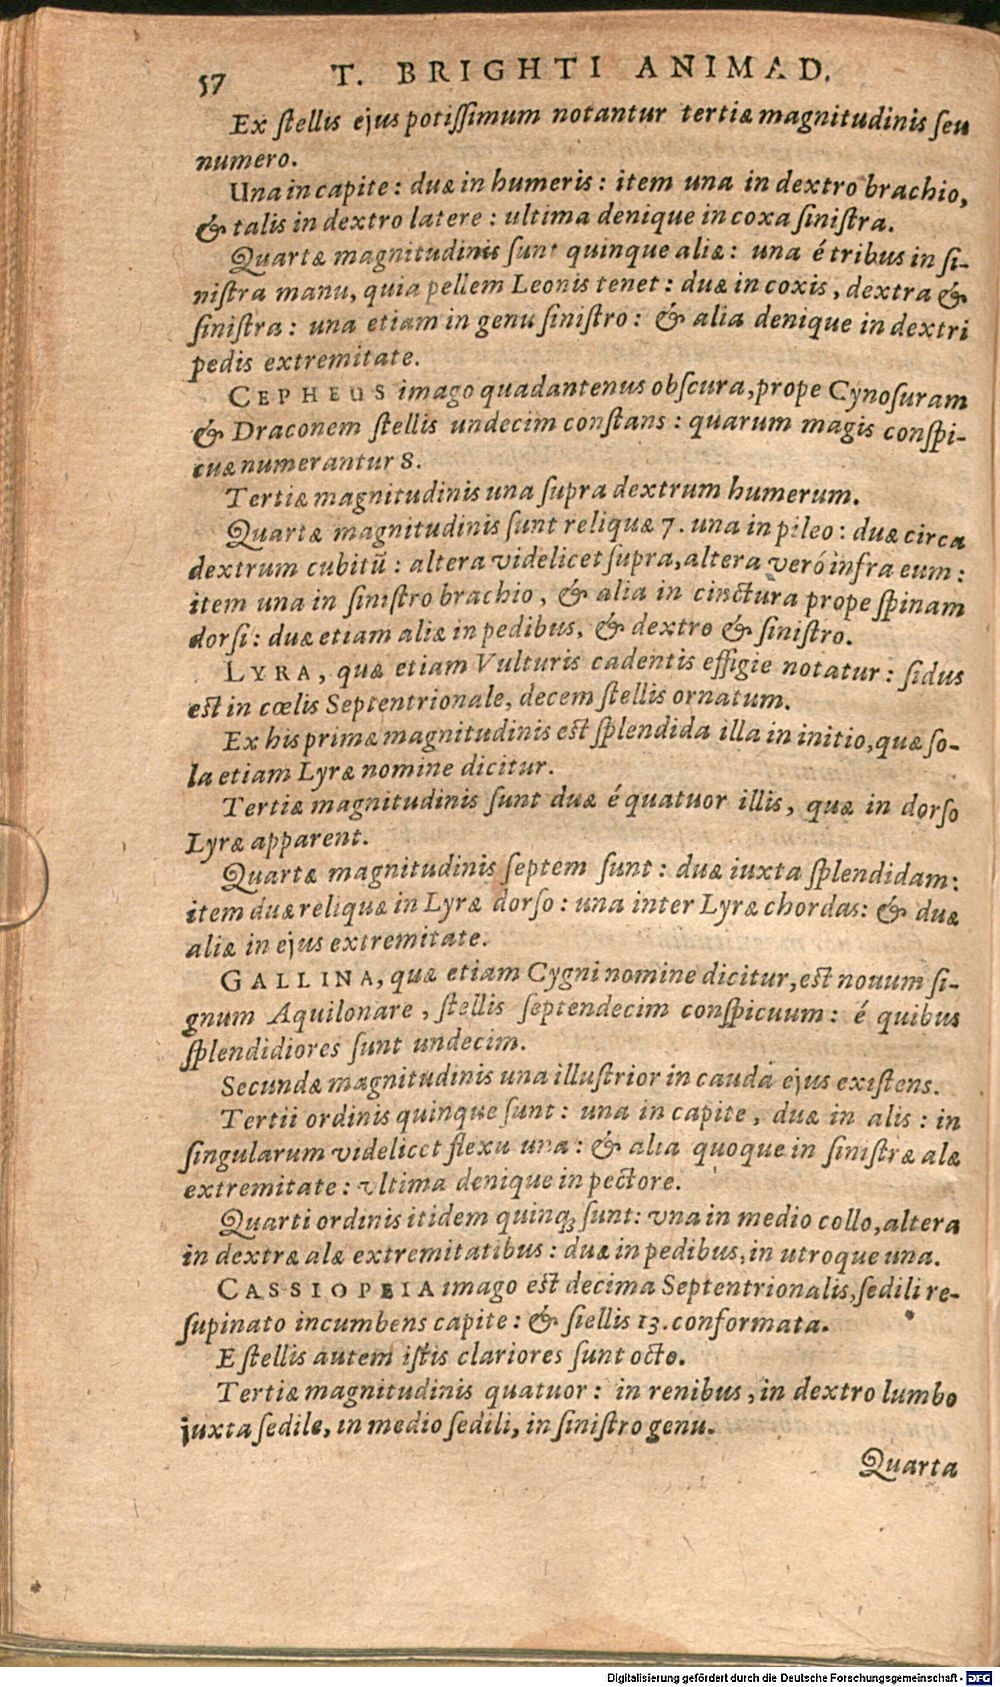 57 T. BRIGHTI ANIMAD.
Ex ſtellis ejus potiſſimum notantur tertiæ magnitudinis ſeu
numero.
Una in capite: duæ in humeris: item una in dextro brachio,
& talis in dextro latere: ultima denique in coxa siniſtra.
Quartæ magnitudinis ſunt quinque aliæ: una é tribus in ſi-
niſtra manu, quia pellem Leonis tenet: duæ in coxis, dextra &
ſiniſtra: una etiam in genu ſiniſtro: & alia denique in dextri
pedis extremitate.
CEPHEUS imago quadantenus obſcura, prope Cynoſuram
& Draconem ſtellis undecim conſtans: quarum magis conſpi-
cuæ numerantur 8.
Tertiæ magnitudinis una ſupra dextrum humerum.
Quartæ magnitudinis ſunt reliquæ 7. una in pileo: duæ circa
dextrum cubitū: altera videlicet ſupra, altera veró infra eum:
item una in ſiniſtro brachio, & alia in cinctura prope ſpinam
dorſi: duæ etiam aliæ in pedibus, & dextro & ſiniſtro.
LYRA, quæ etiam Vulturis cadentis effigie notatur: ſidus
eſt in cœlis Septentrionale, decem ſtellis ornatum.
Ex his primæ magnitudinis eſt ſplendida illa in initio, quæ ſo-
la etiam Lyræ nomine dicitur.
Tertiæ magnitudinis ſunt duæ é quatuor illis, quæ in dorſo
Lyræ apparent.
Quartæ magnitudinis ſeptem ſunt: duæ iuxta ſplendidam:
item duæ reliquæ in Lyræ dorſo: una inter Lyræ chordas: & duæ
aliæ in ejus extremitate.
GALLINA, quæ etiam Cygni nomine dicitur, eſt nouum ſi-
gnum Aquilonare, ſtellis ſeptendecim conſpicuum: é quibus
ſplendidiores ſunt undecim.
Secundæ magnitudinis una illuſtrior in cauda ejus exiſtens.
Tertii ordinis quinque ſunt: una in capite, duæ in alis: in
ſingularum videlicet flexu una: & alia quoque in ſiniſtræ alæ
extremitate: vltima denique in pectore.
Quarti ordinis itidem quinqꝫ ſunt: vna in medio collo, altera
in dextræ alæ extremitatibus: duæ in pedibus, in utroque una.
CASSIOPEIA imago eſt decima Septentrionalis, ſedili re-
ſupinato incumbens capite: & ſiellis 13. conformata.
E ſtellis autem iſtis clariores ſunt octo.
Tertiæ magnitudinis quatuor: in renibus, in dextro lumbo
juxta ſedile, in medio ſedili, in ſiniſtro genu.
Quarta
Digitalisierung gefördert durch die Deutsche Forschungsgemeinschaft - DFG